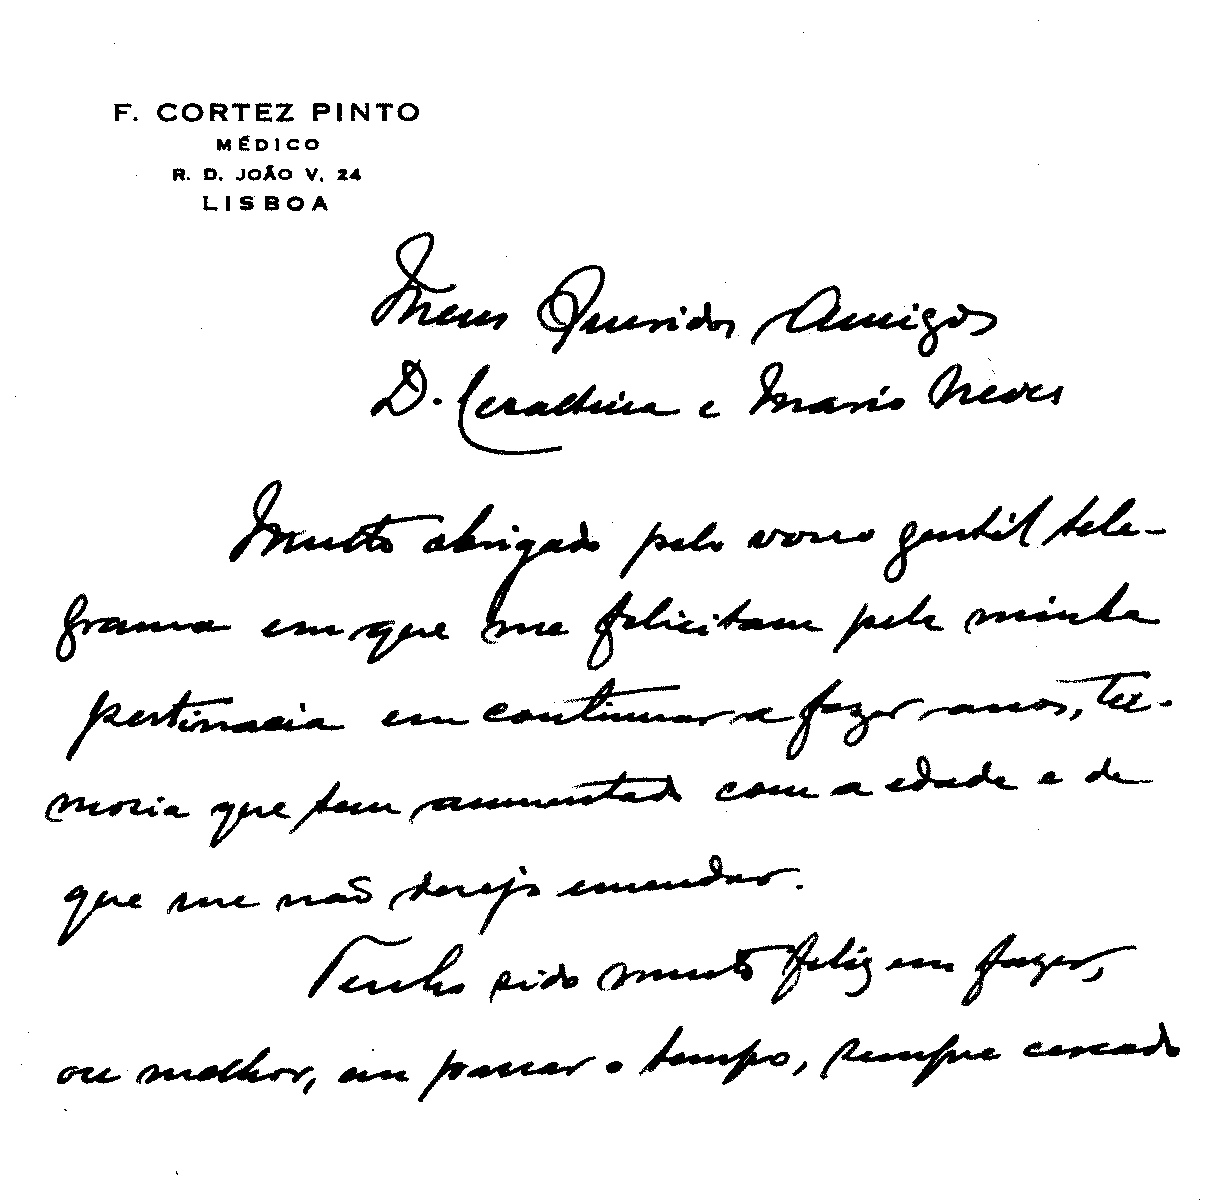 F. CORTEZ PINTO
MÉDICO
R. D. JOÃO V, 24
LISBOA
Meus Queridos Amigos
D. e Mario Neves
Muito obrigado pelo vosso gentil tele-
grama em que me felicitam pela minha
pertinacia em continuar a fazer anos, tei-
mosia que tem aumentado com a edade e de
que me não desejo emendar.
Tenho sido muito feliz em fazer,
ou melhor, em passar o tempo, sempre cercado